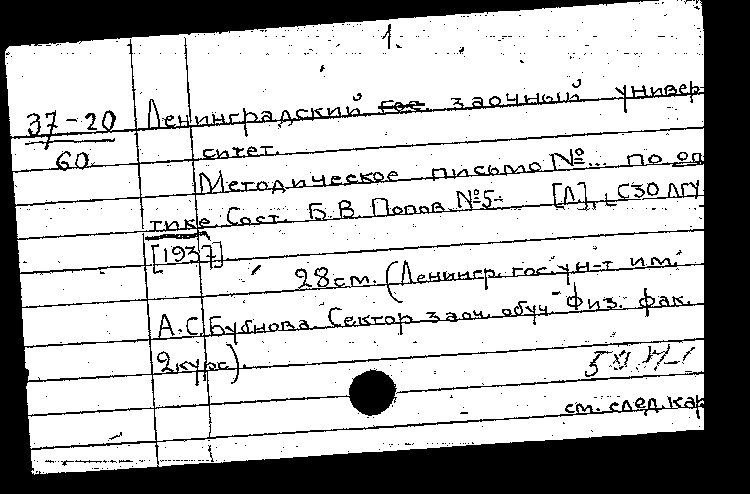 1.
37-20
60
Ленинградский заочный универ
ситет.
Методическое письмо №... по оп
тике Сост. Б.В. Попов №5- [Л], СЗО ЛГУ
[1937]
28 см. (Ленингр. гос. ун-т им.
А.С. Бубнова. Сектор заоч. обуч. Физ. фак.
2 курс).
см. след. кар